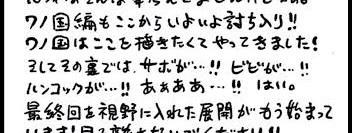 ワノ国編もここからいよいよ討ち入り!!
ワノ国はここを描きたくてやってきました!
そしてその裏では、サボが…!! ビビが…!!
ハンコックが…!! あぁああ…!! はい。
最終回を視野に入れた展開がもう始まって
います!目を離さないでください!!